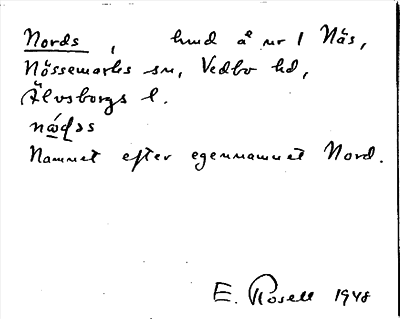 Nords, hmd å nr 1 Näs,
Nössemarks sn, Vedbo hd,
Älvsborgs l.
Namnet efter egennamnet Nord.
E. Rosell 1948